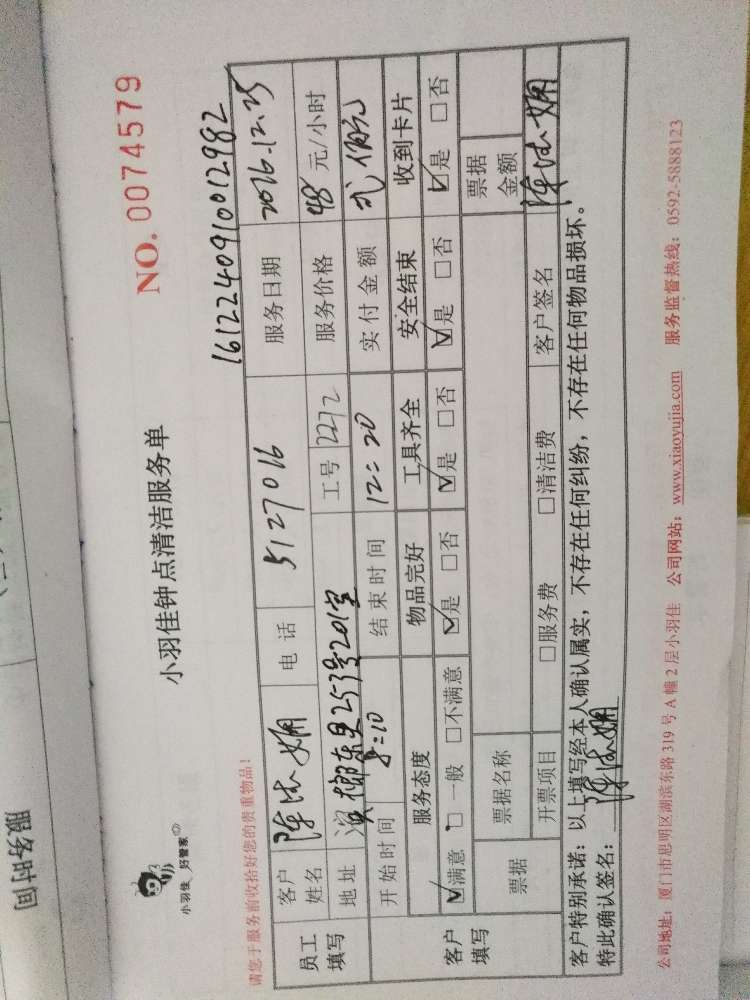 服务时间
小羽佳 好管家
小羽佳钟点清洁服务单
NO. 0074579
请您于服务前收拾好您的贵重物品!
1612240910012982
员工填写 客户姓名 电话 5127016 服务日期 2016.12.25
地址 253号201室 工号 2272 服务价格 48 元/小时
开始时间 8:10 结束时间 12:20 实付金额 弍佰元
客户填写 服务态度 物品完好 工具齐全 安全结束 收到卡片
☑满意 □一般 □不满意 ☑是 □否 ☑是 □否 ☑是 □否 ☑是 □否
票据 票据名称 票据金额
开票项目 □服务费 □清洁费 客户签名
客户特别承诺:以上填写经本人确认属实,不存在任何纠纷,不存在任何物品损坏。
特此确认签名:
公司地址:厦门市思明区湖滨东路 319 号 A 幢 2 层小羽佳 公司网站:www.xiaoyujia.com 服务监督热线:0592-5888123